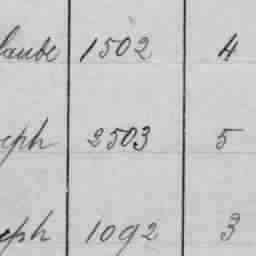 laube 1502 4
eph 2503 5
eph 1092 3